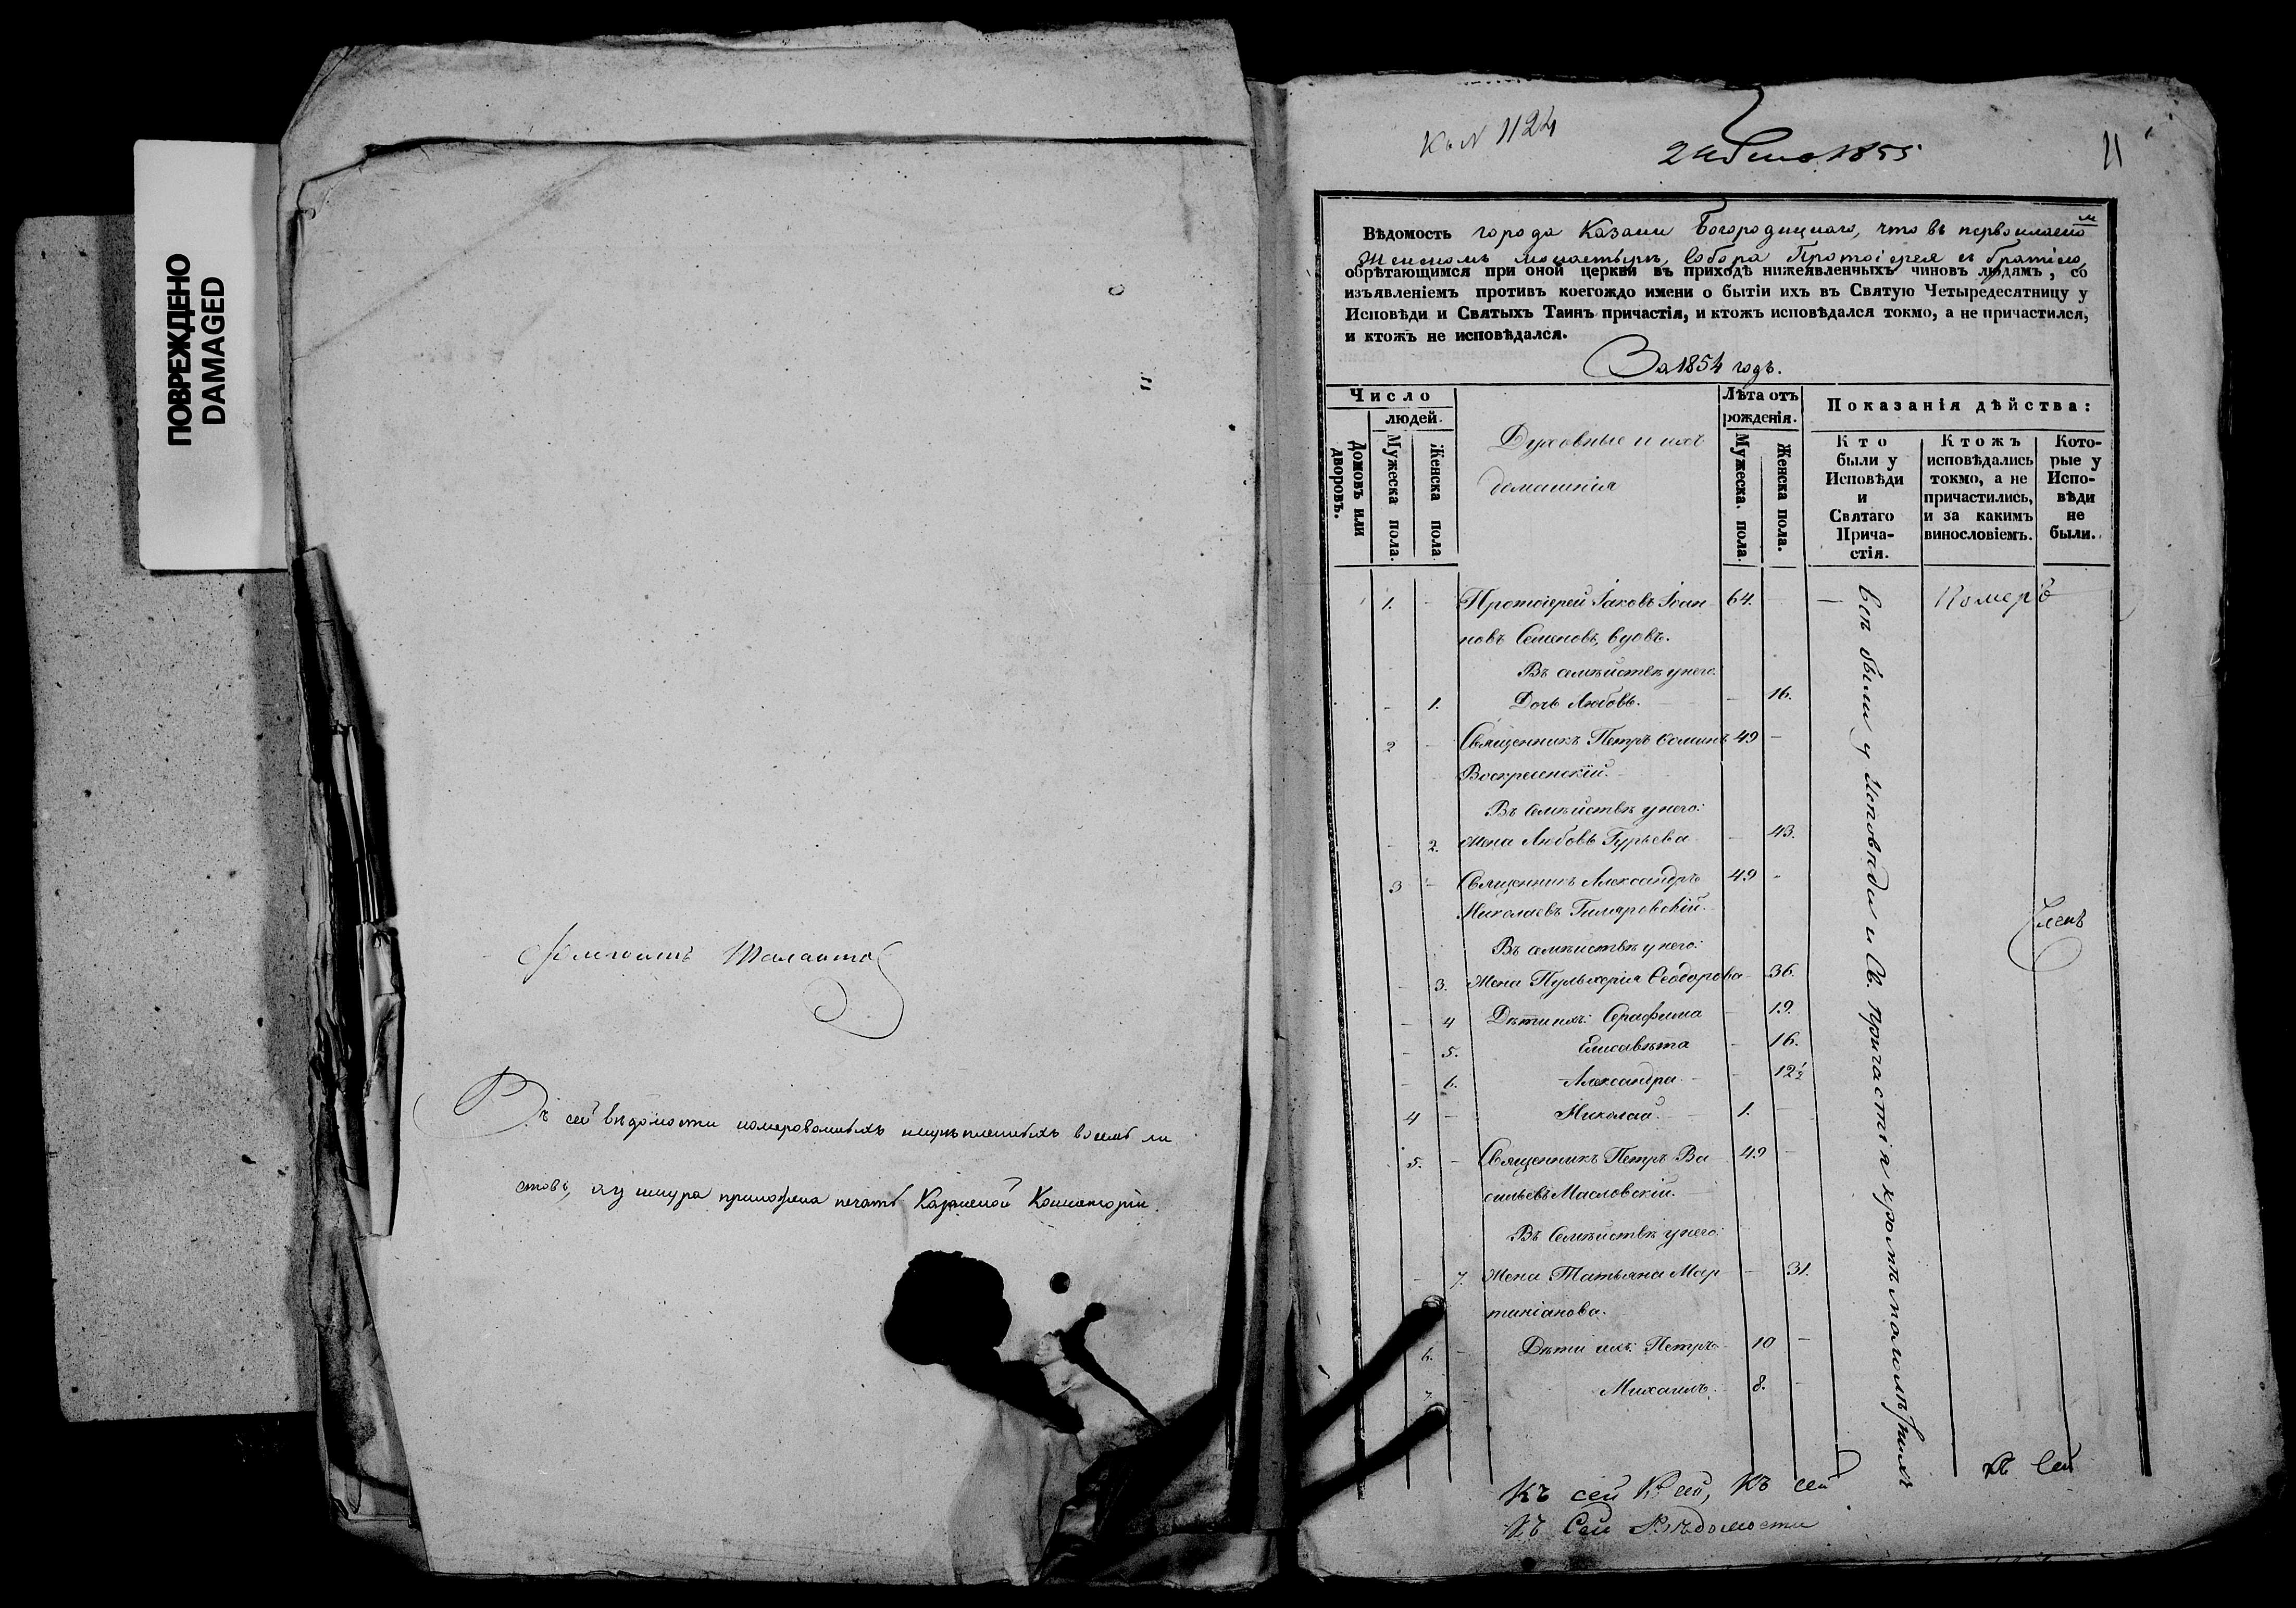 ПОВРЕЖДЕНО
DAMAGED
Въ сей вѣдомости номерованныхъ и шнуъ пленныхъ восемь ли
стовъ, а у шнура приложена печать Казанской Консисторіи.
Къ N 1124
1855
11
Вѣдомость города Казани Богородицкаго, что въ первоклассно
м
Женскомъ монастырѣ, Собора Протоіерея съ братіею,
обрѣтающимся при оной церкви въ приходѣ нижеявленныхъ чиновъ людямъ, со
изъявленіемъ противъ коегождо имени о бытіи ихъ въ Святую Четыредесятницу у
Исповѣди и Святыхъ Таинъ причастія, и ктожъ исповѣдался токмо, а не причастился,
и ктожъ не исповѣдался.
За 1854 годъ.
Число
людей.
Домовъ или дворовъ.
Мужеска пола.
Женска пола
Духовные и ихъ
домашнія
Лѣта отъ
рожденія.
Мужеска. пола
Женска пола.
Показанія дѣйства:
Кто
были у
Исповѣди
и
Святаго
Прича-
стія.
Ктожъ
исповѣдались
токмо, а не
причастились,
и за какимъ
винословіемъ.
Кото-
рые у
Испо-
вѣди
не
были.
1. - Протоіерей Іаковъ Іоан 64. - — Померъ
новъ Семеновъ, вдовъ.
Въ семѣйствѣ у него:
- 1. Дочь Любовь. - 16.
2 - Священникъ Петръ Осипъ 49 -
Воскресенскій.
Въ Семѣйствѣ у него:
- 2. Жена Любовь Гурьева - 43.
3 - Священникъ Александръ 49 -
Николаевъ Гиляровскій.
Въ семѣйствѣ у него:
- 3. Жена Пульхерія Ѳеодорова 36.
- 4 Дѣти ихъ: Серафима - 19.
- 5. Елисавѣта - 16.
- 6. Александра - 12½
4 - Николай. 1. -
5. - Священникъ Петръ Ва 49 -
сильевъ Масловскій.
Въ Семѣйствѣ у него:
- 7. Жена Татьяна Мар - 31.
тиніанова.
6. - Дѣти ихъ: Петръ 10 -
7. Михаилъ. 8. -
Всѣ были у Исповѣди и Св. Причастія кромѣ малолѣтнихъ
Членъ
Къ сей Къ сей, Къ сей
Къ Сей Вѣдомости